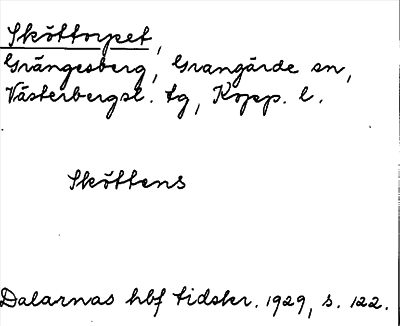 Sköttorpet,
Grängesberg, Grangärde sn,
Västerbergsl. tg, Kopp. l.
Sköttens
Dalarnas hbf tidskr. 1929, s. 122.